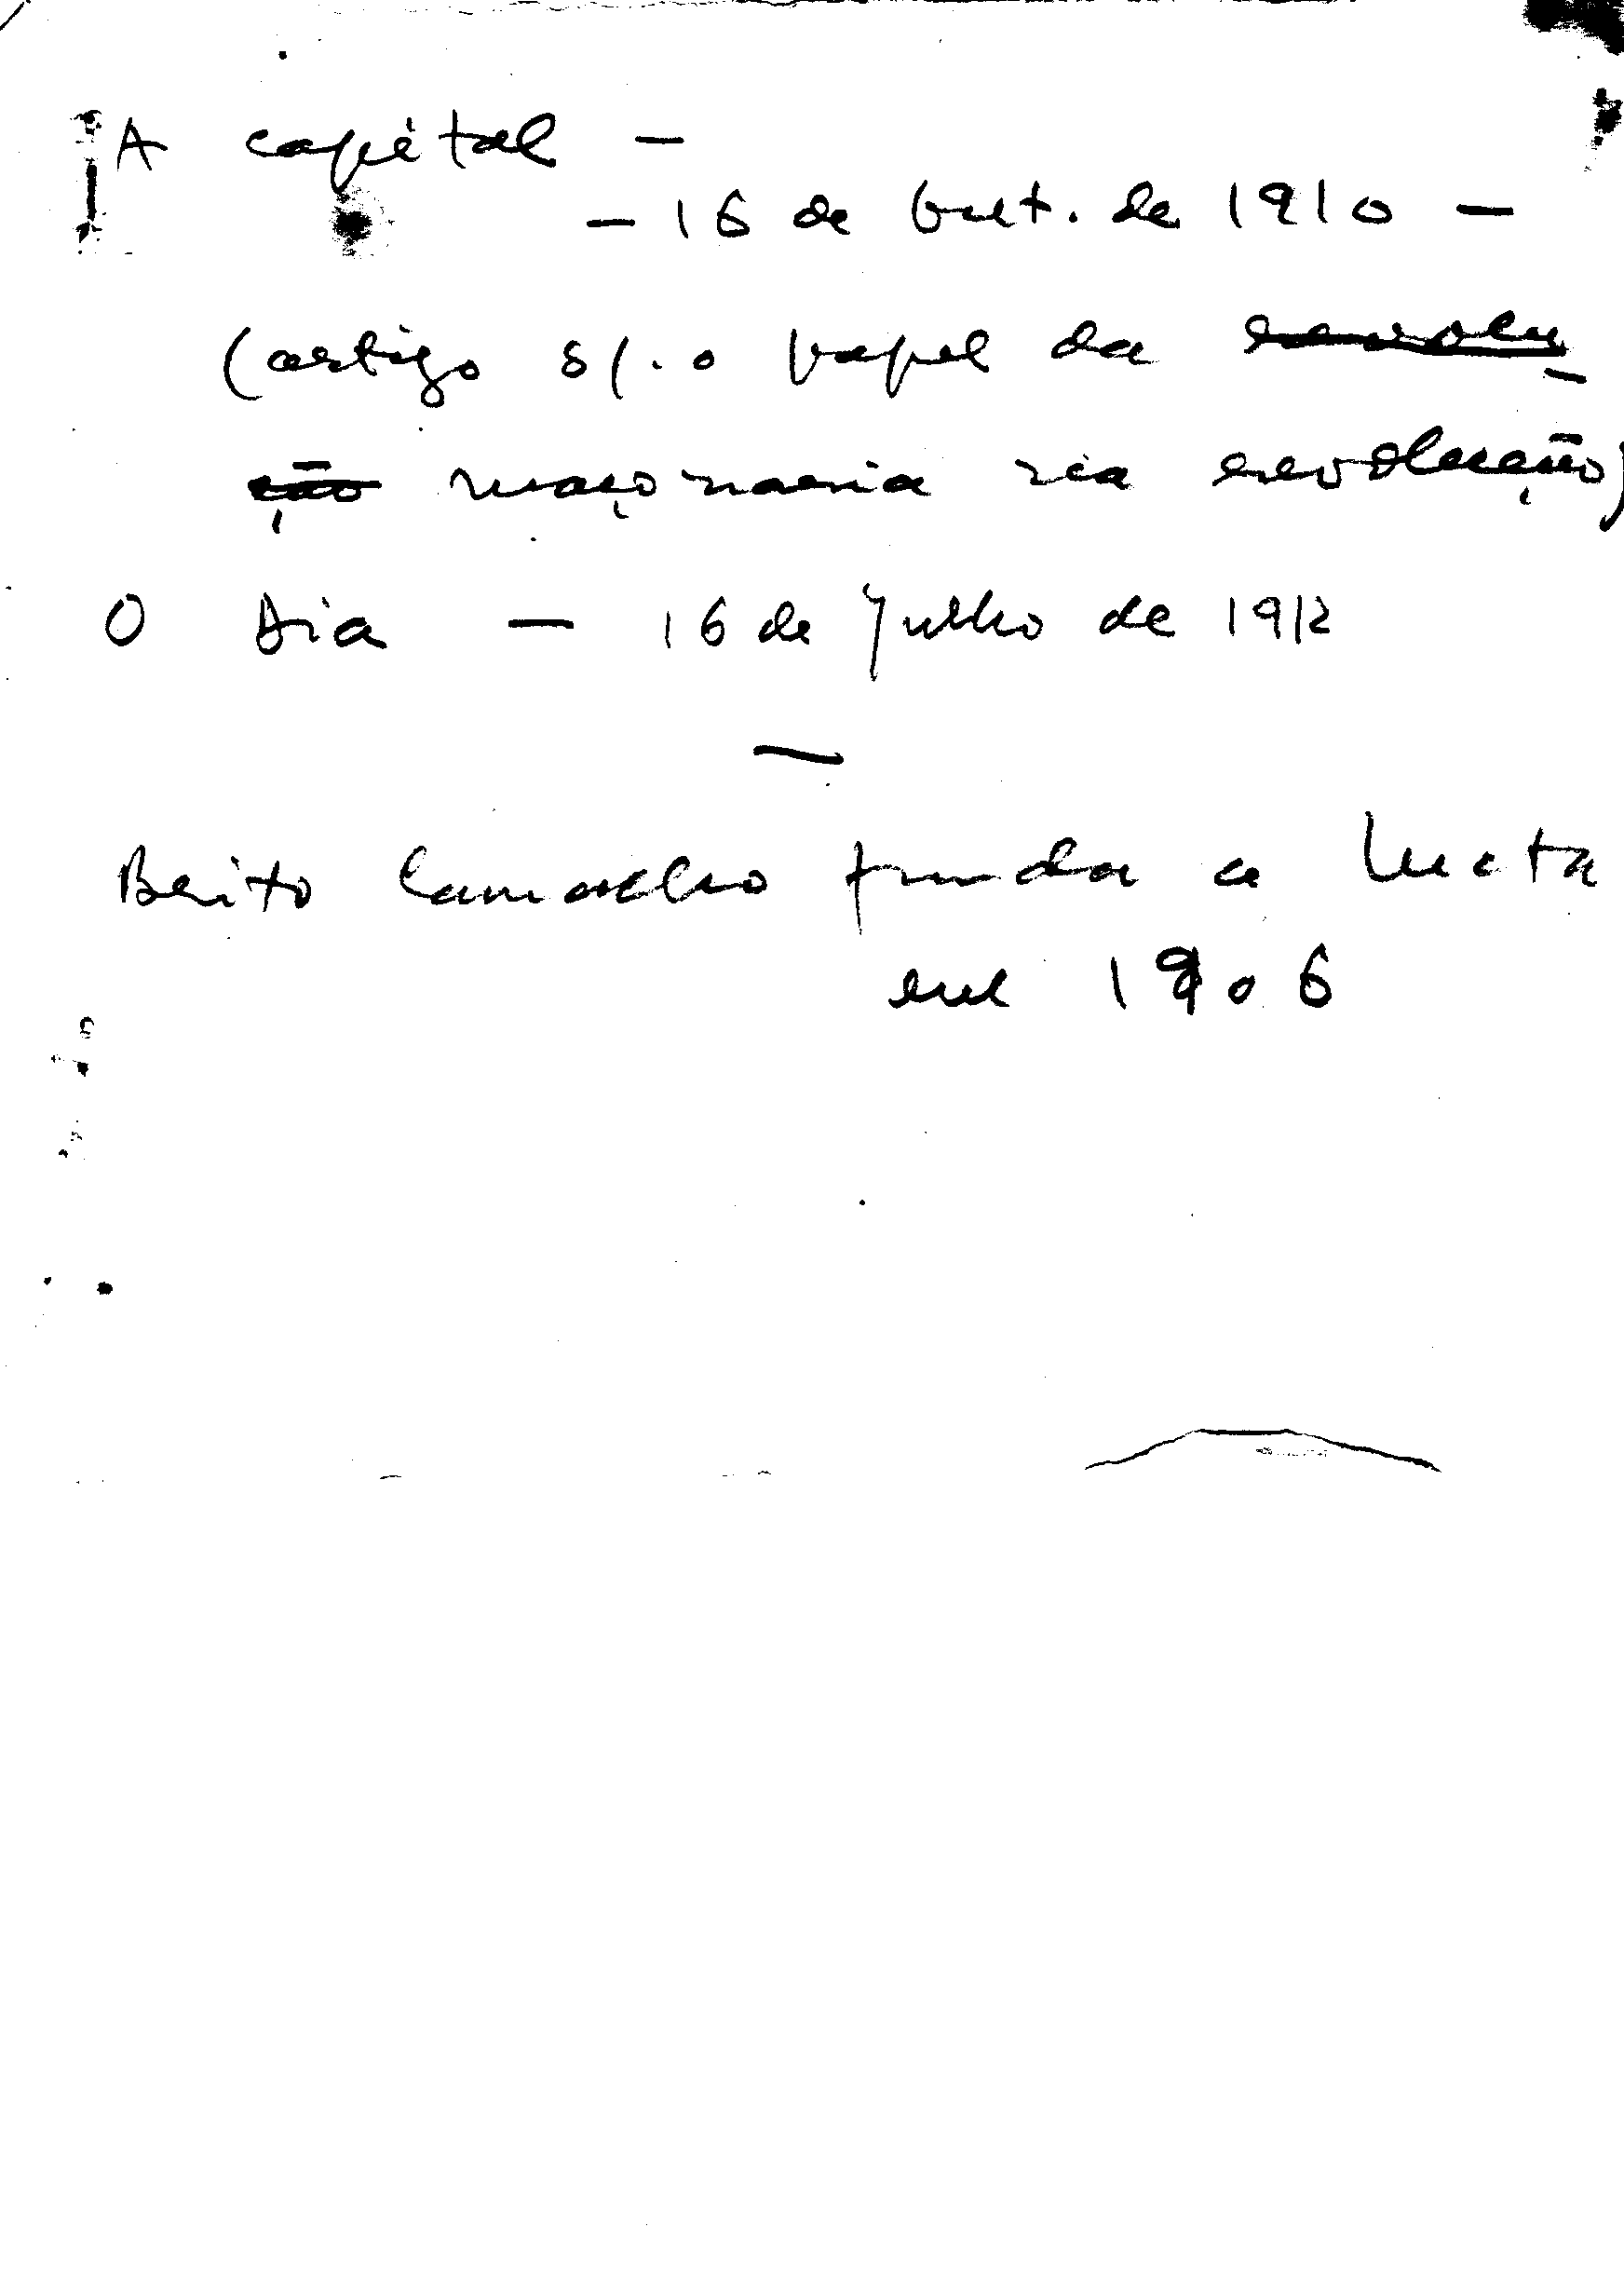 A capital —
— 16 de Out. de 1910 —
(artigo s/. o papel da revolu-
ção maçonaria na revolução)
O Dia — 16 de Julho de 1912
—
Brito Camacho funda a Lucta
em 1906